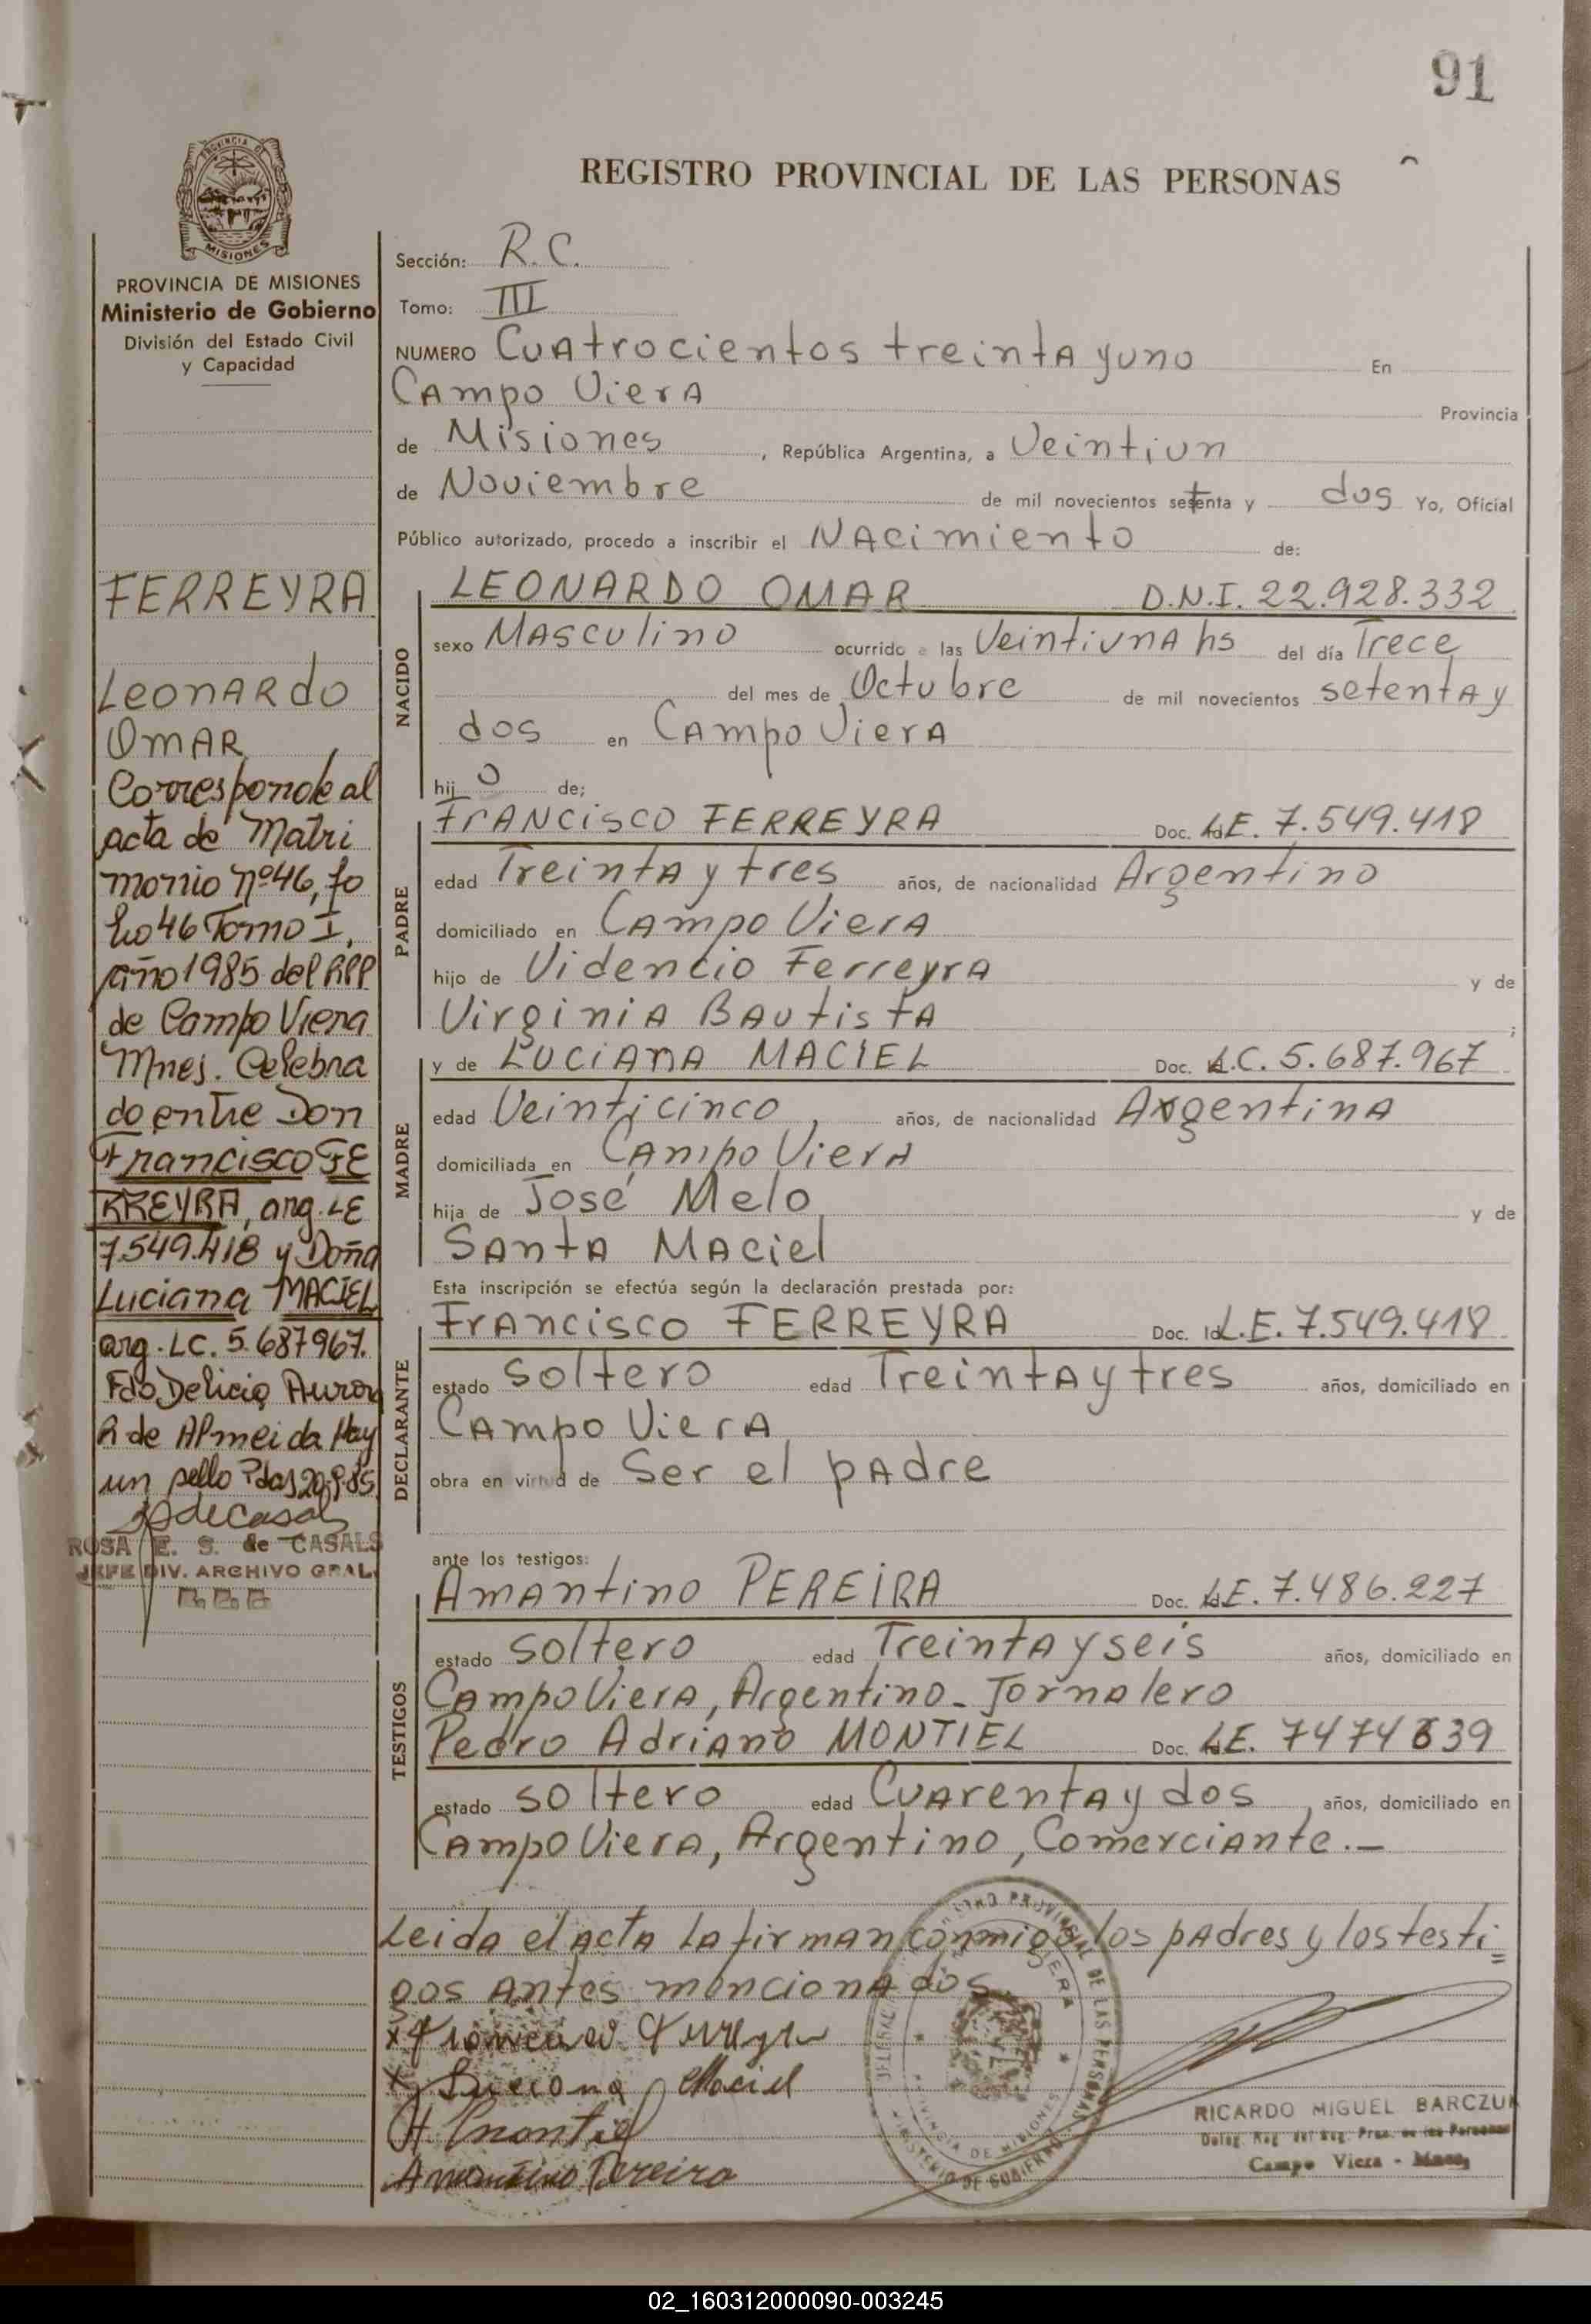 91
REGISTRO PROVINCIAL DE LAS PERSONAS
PROVINCIA DE MISIONES
PROVINCIA DE MISIONES
Ministerio de Gobierno
División del Estado Civil
y Capacidad
FERREYRA
Leonardo
Omar
Corresponde al
acta de Matri
monio nº 46, fo
lio 46 Tomo I,
año 1985 del RPP
de Campo Viera
Mnes. Celebra
do entre Don
Francisco FE
RREYRA, arg. LE
7.549.418 y Doña
Luciana MACIEL
arg. LC. 5.687967.
Fdo Delicia Aurora
R de Almeida Hay
un sello Pdas 20-9-85
ROSA E. S. de CASALS
JEFE DIV. ARCHIVO GRAL.
Sección: R.C.
Tomo: III
NUMERO Cuatrocientos treinta y uno En
Campo Viera Provincia
de Misiones, República Argentina, a Veintiun
de Noviembre de mil novecientos setenta y dos Yo, Oficial
Público autorizado, procedo a inscribir el Nacimiento de:
NACIDO
LEONARDO OMAR D.N.I. 22.928.332
sexo Masculino ocurrido a las Veintiuna hs del día Trece
del mes de Octubre de mil novecientos setenta y
dos en Campo Viera
hijo de;
PADRE
Francisco FERREYRA Doc. L.E. 7.549.418
edad Treinta y tres años, de nacionalidad Argentino
domiciliado en Campo Viera
hijo de Videncio Ferreyra y de
Virginia Bautista ;
MADRE
y de LUCIANA MACIEL Doc. L.C. 5.687.967
edad Veinticinco años, de nacionalidad Argentina
domiciliada en Campo Viera
hija de José Melo y de
Santa Maciel
Esta inscripción se efectúa según la declaración prestada por:
DECLARANTE
Francisco FERREYRA Doc. Id L.E. 7.549.418
estado soltero edad Treinta y tres años, domiciliado en
Campo Viera
obra en virtud de Ser el padre
ante los testigos:
TESTIGOS
Amantino PEREIRA Doc. L.E. 7.486.227
estado soltero edad Treinta y seis años, domiciliado en
Campo Viera, Argentino - Jornalero
Pedro Adriano MONTIEL Doc. L.E. 7474639
estado soltero edad Cuarenta y dos años, domiciliado en
Campo Viera, Argentino, Comerciante.-
Leida el acta la firman conmigo los padres y los testi=
gos antes mencionados
x Francisco Ferreyra
x Luciana Maciel
Montiel
Amantino Pereira
REGISTRO PROVINCIAL DE LAS PERSONAS
PROVINCIA DE MISIONES
MINISTERIO DE GOBIERNO
RICARDO MIGUEL BARCZUK
Campo Viera - Mnes.
02_160312000090-003245